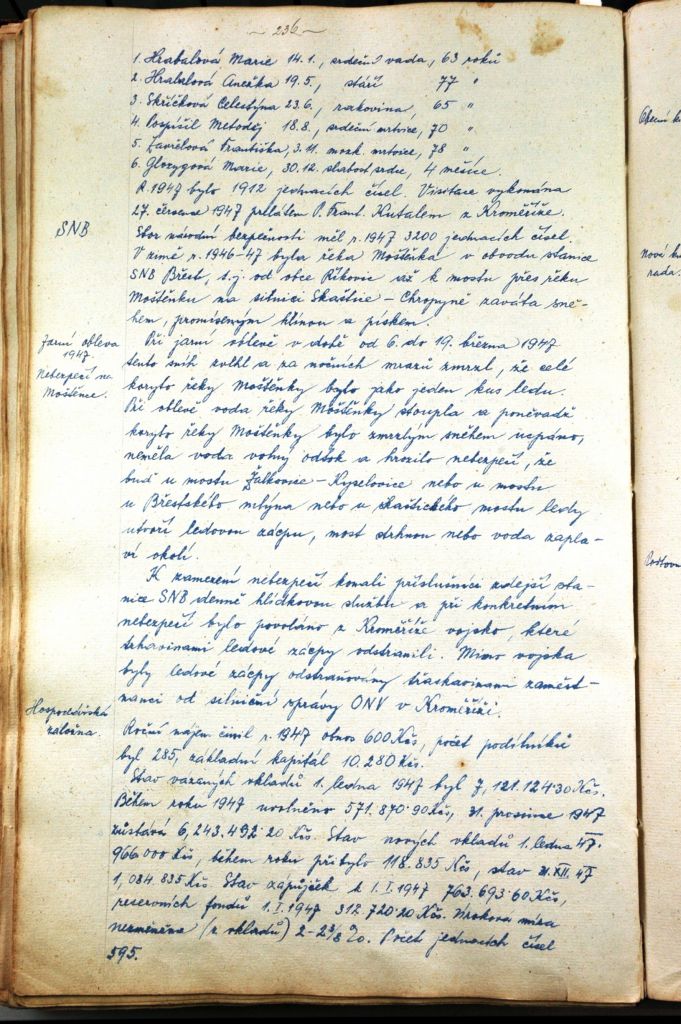 ~ 236 ~
1. Hrabalová Marie 14.1., srdeční vada, 63 roků
2. Hrabalová Anežka 19.5., stáří 77 "
3. Skříčková Celestýna 23.6., rakovina, 65 "
4. Pospíšil Metoděj 18.8., srdeční mrtvice, 70 "
5. Zavřelová Františka, 3.11. mozk. mrtvice, 78 "
6. Glozygová Marie, 30.12. slabost srdce, 4 měsíce.
R. 1947 bylo 1912 jednacích čísel. Visitace vykonána
27. července 1947 prelátem P. Frant. Kutalem z Kroměříže.
SNB
Sbor národní bezpečnosti měl r. 1947 3200 jednacích čísel.
V zimě r. 1946-47 byla řeka Moštěnka v obvodu stanice
SNB Břest, t.j. od obce Říkovic až k mostu přes řeku
Moštěnku na silnici Skaštice - Chropyně zaváta sně-
hem, promíseným hlínou a pískem.
Jarní obleva
1947.
Nebezpečí na
Moštěnce.
Při jarní oblevě v době od 6. do 19. března 1947
tento sníh zvlhl a za nočních mrazů zmrzl, že celé
koryto řeky Moštěnky bylo jako jeden kus ledu.
Při oblevě voda řeky Moštěnky stoupla a poněvadž
koryto řeky Moštěnky bylo zmrzlým sněhem ucpáno,
neměla voda volný odtok a hrozilo nebezpečí, že
buď u mostu Žalkovice - Kyselovice nebo u mostu
u Břestského mlýna nebo u skaštického mostu ledy
utvoří ledovou zácpu, most strhnou nebo voda zapla-
ví okolí.
K zamezení nebezpečí konali příslušníci zdejší sta-
nice SNB denně hlídkovou službu a při konkretním
nebezpečí bylo povoláno z Kroměříže vojsko, které
trhavinami ledové zácpy odstranili. Mimo vojska
byly ledové zácpy odstraňovány třaskavinami zaměst-
nanci od silniční správy ONV v Kroměříži.
Hospodářská
záložna.
Roční nájem činil r. 1947 obnos 600 Kčs, počet podílníků
byl 285, základní kapitál 10.280 Kčs.
Stav vázaných vkladů 1. ledna 1947 byl 7,121.124·30 Kčs.
Během roku 1947 uvolněno 571.870·90 Kčs, 31. prosince 1947
zůstává 6,243.492·20 Kčs. Stav nových vkladů 1. ledna 47.
966 000 Kčs, během roku přibylo 118.835 Kčs, stav 31. XII. 47
1,084.835 Kčs. Stav zápůjček k 1. I. 1947 763.693·60 Kčs,
reservních fondů 1. I. 1947 312.720·20 Kčs. Úroková míra
nezměněna (z vkladů) 2-2 3/8 %. Počet jednacích čísel
595.
Obecní
Nová
rada.